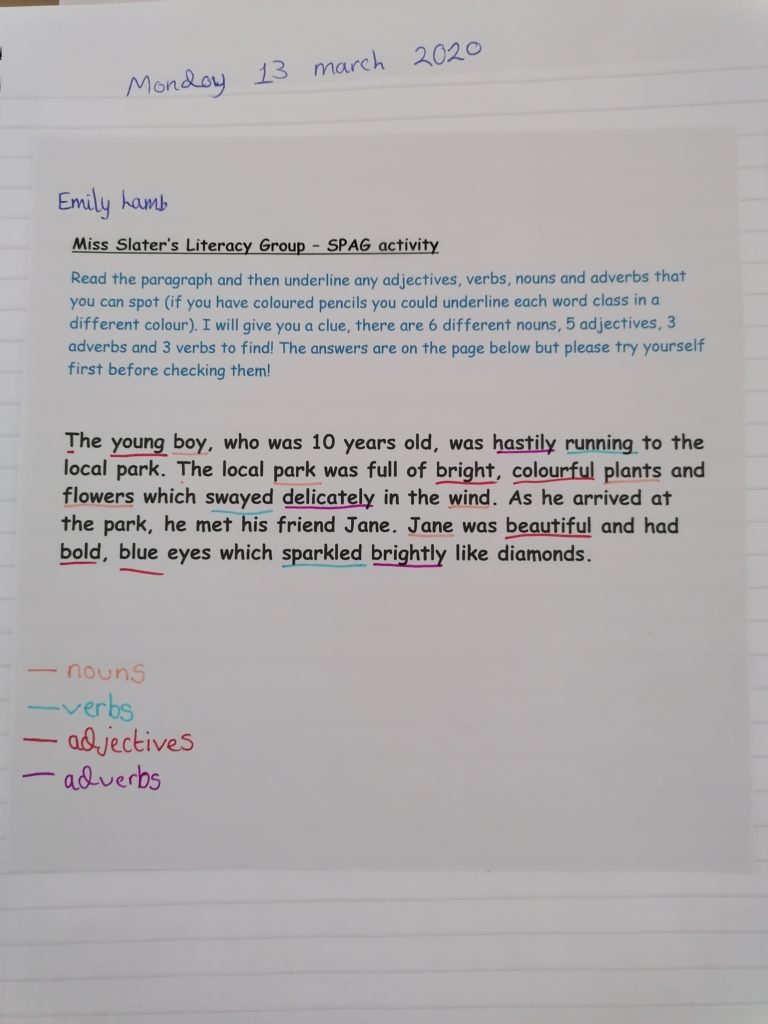 Monday 13 march 2020
Emily Lamb
Miss Slater's Literacy Group - SPAG activity
Read the paragraph and then underline any adjectives, verbs, nouns and adverbs that
you can spot (if you have coloured pencils you could underline each word class in a
different colour). I will give you a clue, there are 6 different nouns, 5 adjectives, 3
adverbs and 3 verbs to find! The answers are on the page below but please try yourself
first before checking them!
The young boy, who was 10 years old, was hastily running to the
local park. The local park was full of bright, colourful plants and
flowers which swayed delicately in the wind. As he arrived at
the park, he met his friend Jane. Jane was beautiful and had
bold, blue eyes which sparkled brightly like diamonds.
— nouns
— verbs
— adjectives
— adverbs